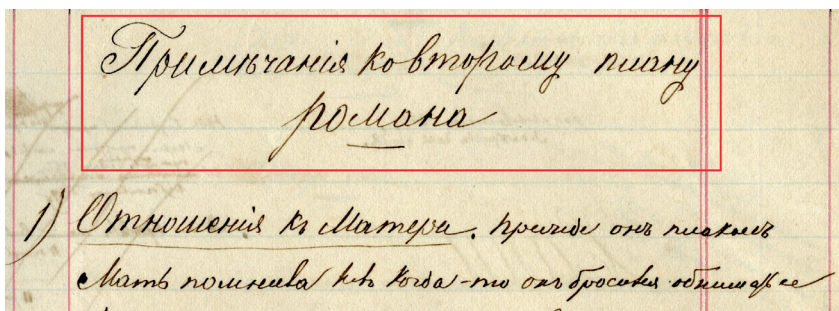 Примѣчанія ко второму плану
романа
1) Отношенія къ Матери. Прежде онъ плакалъ
Мать когда-то онъ бросался обнимать ее